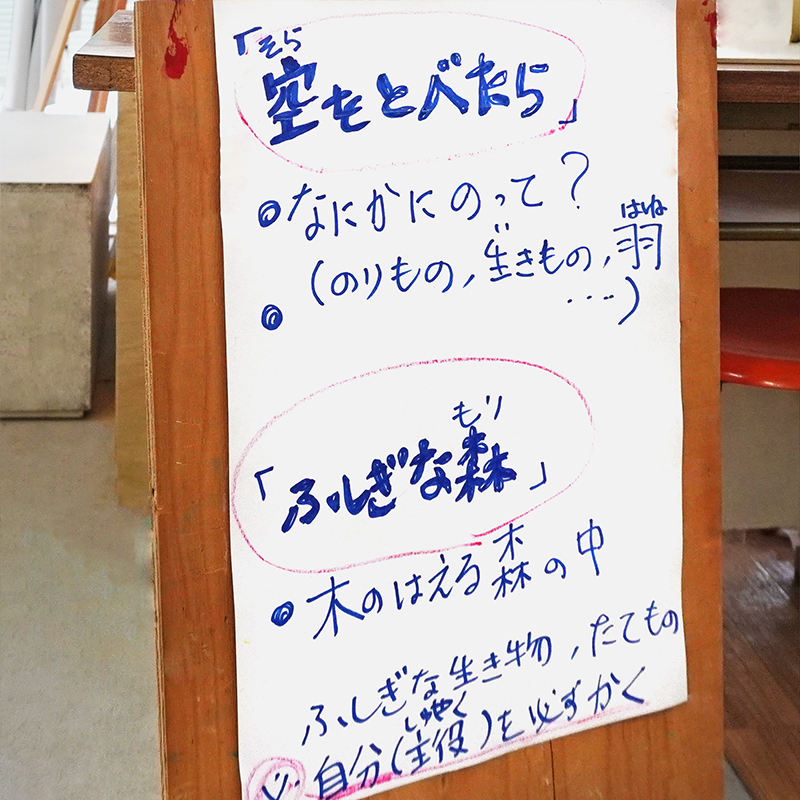 そら
「空をとべたら」
なにかにのって?
はね
(のりもの,生きもの,羽
...)
もり
「ふしぎな森」
木のはえる森の中
ふしぎな生き物,たてもの
しゅやく
自分(主役)を必ずかく